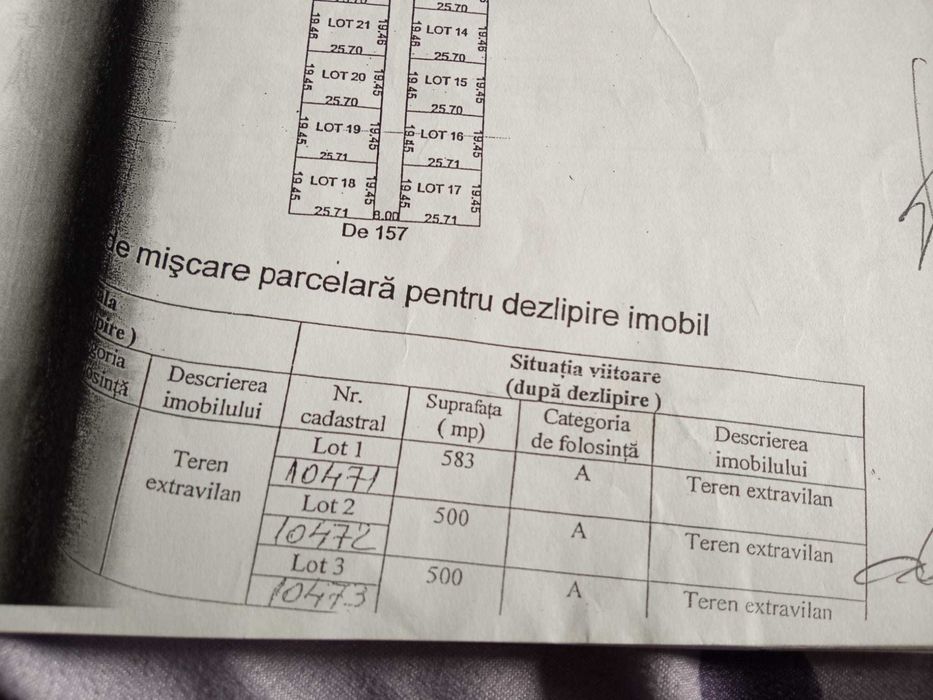 25.70
19.46 LOT 21 19.46
19.46 LOT 14 19.46
25.70
25.70
19.45 LOT 20 19.45
19.45 LOT 15 19.45
25.70
25.70
19.45 LOT 19 19.45
19.45 LOT 16 19.45
25.71
25.71
19.45 LOT 18 19.45
19.45 LOT 17 19.45
25.71 8.00 25.71
De 157
de mişcare parcelară pentru dezlipire imobil
Situaţia viitoare
(după dezlipire )
Descrierea
imobilului
Nr.
cadastral
Suprafaţa
( mp)
Categoria
de folosinţă
Descrierea
imobilului
Teren
extravilan
Lot 1
10471
583
A
Teren extravilan
Lot 2
10472
500
A
Teren extravilan
Lot 3
10473
500
A
Teren extravilan